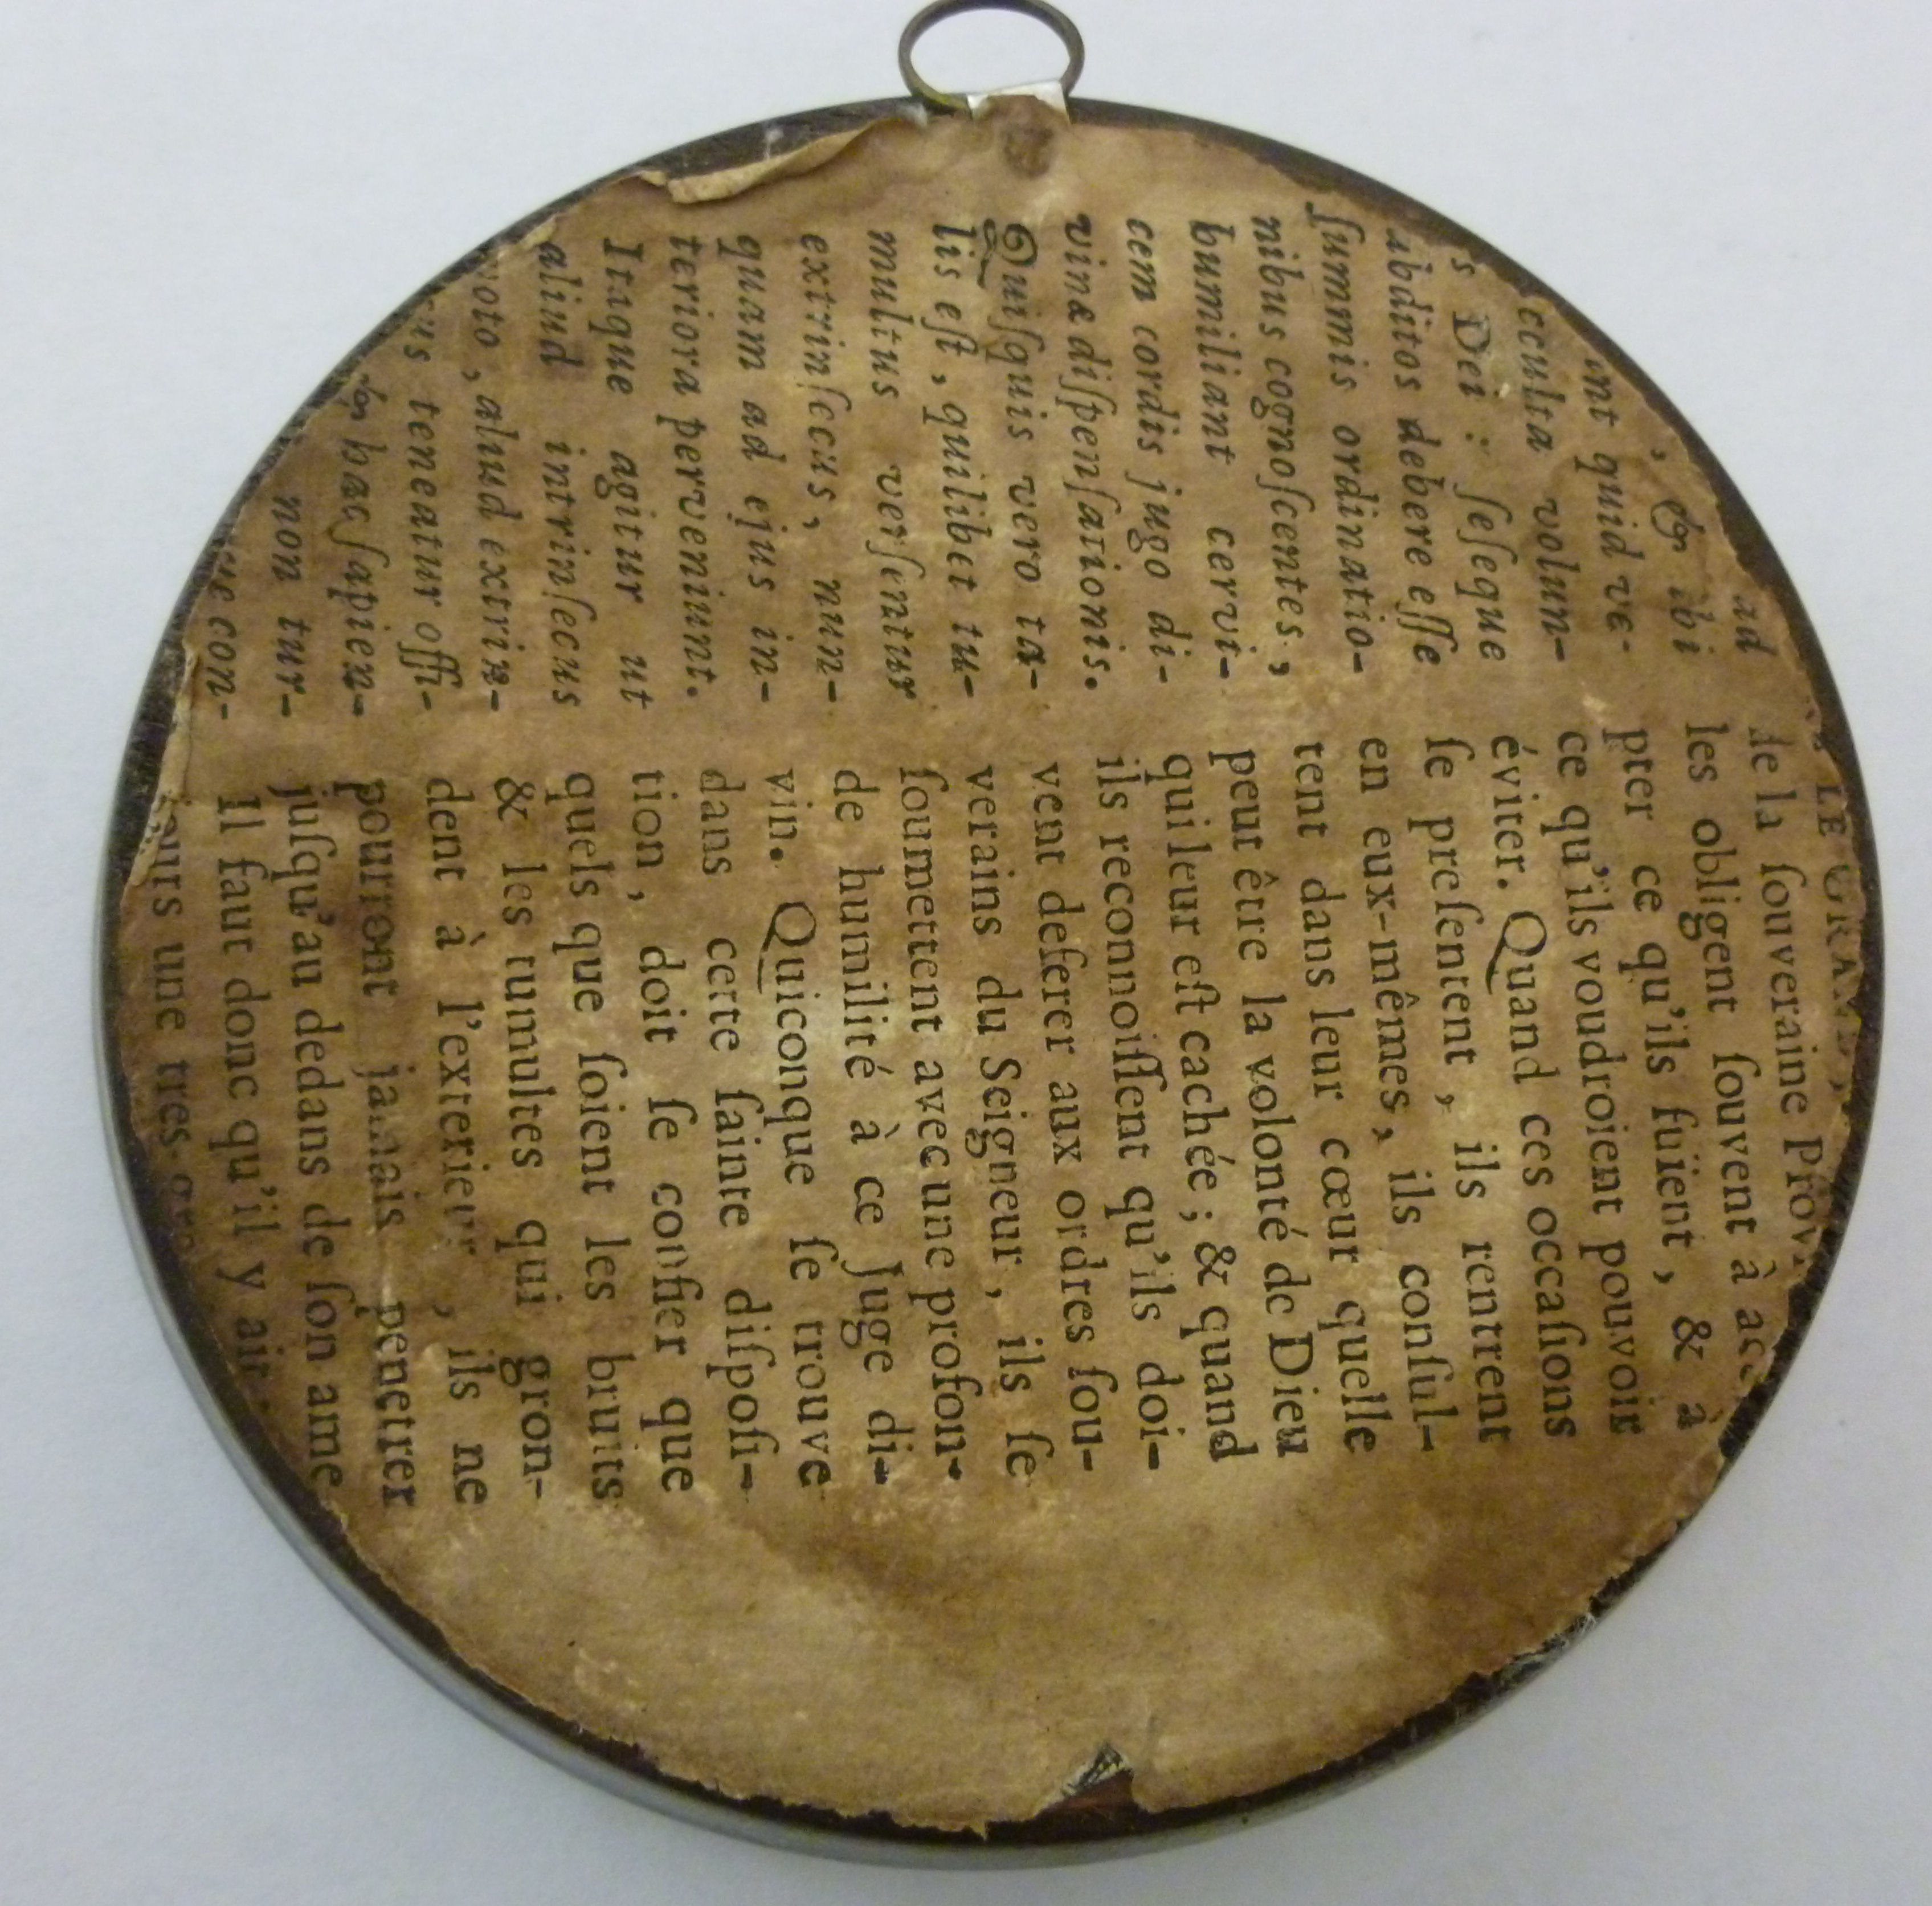 LE GRAND,
ad
, & ibi
int quid ve-
cculta volun-
s Dei : ſeſeque
ubditos debere eſſe
ſummis ordinatio-
nibus cognoſcentes,
humiliant cervi-
cem cordis jugo di-
vinæ diſpenſationis.
Quiſquis vero ta-
lis eſt, quilibet tu-
multus verſentur
extrinſecus, nun-
quam ad ejus in-
teriora perveniunt.
Itaque agitur ut
aliud intrinſecus
voto, aliud extrin-
cus teneatur offi-
& hac ſapien-
non tur-
con-
de la ſouveraine Provi
les obligent ſouvent à acc
pter ce qu'ils fuïent, & à
ce qu'ils voudroient pouvoir
éviter. Quand ces occaſions
ſe preſentent, ils rentrent
en eux-mêmes, ils conſul-
tent dans leur cœur quelle
peut être la volonté de Dieu
qui leur eſt cachée ; & quand
ils reconnoiſſent qu'ils doi-
vent deferer aux ordres ſou-
verains du Seigneur, ils ſe
ſoumettent avec une profon-
de humilité à ce Juge di-
vin. Quiconque ſe trouve
dans cette ſainte diſpoſi-
tion, doit ſe confier que
quels que ſoient les bruits
& les tumultes qui gron-
dent à l'exterieur, ils ne
pourront jamais penetrer
juſqu'au dedans de ſon ame
Il faut donc qu'il y ait
ours une tres